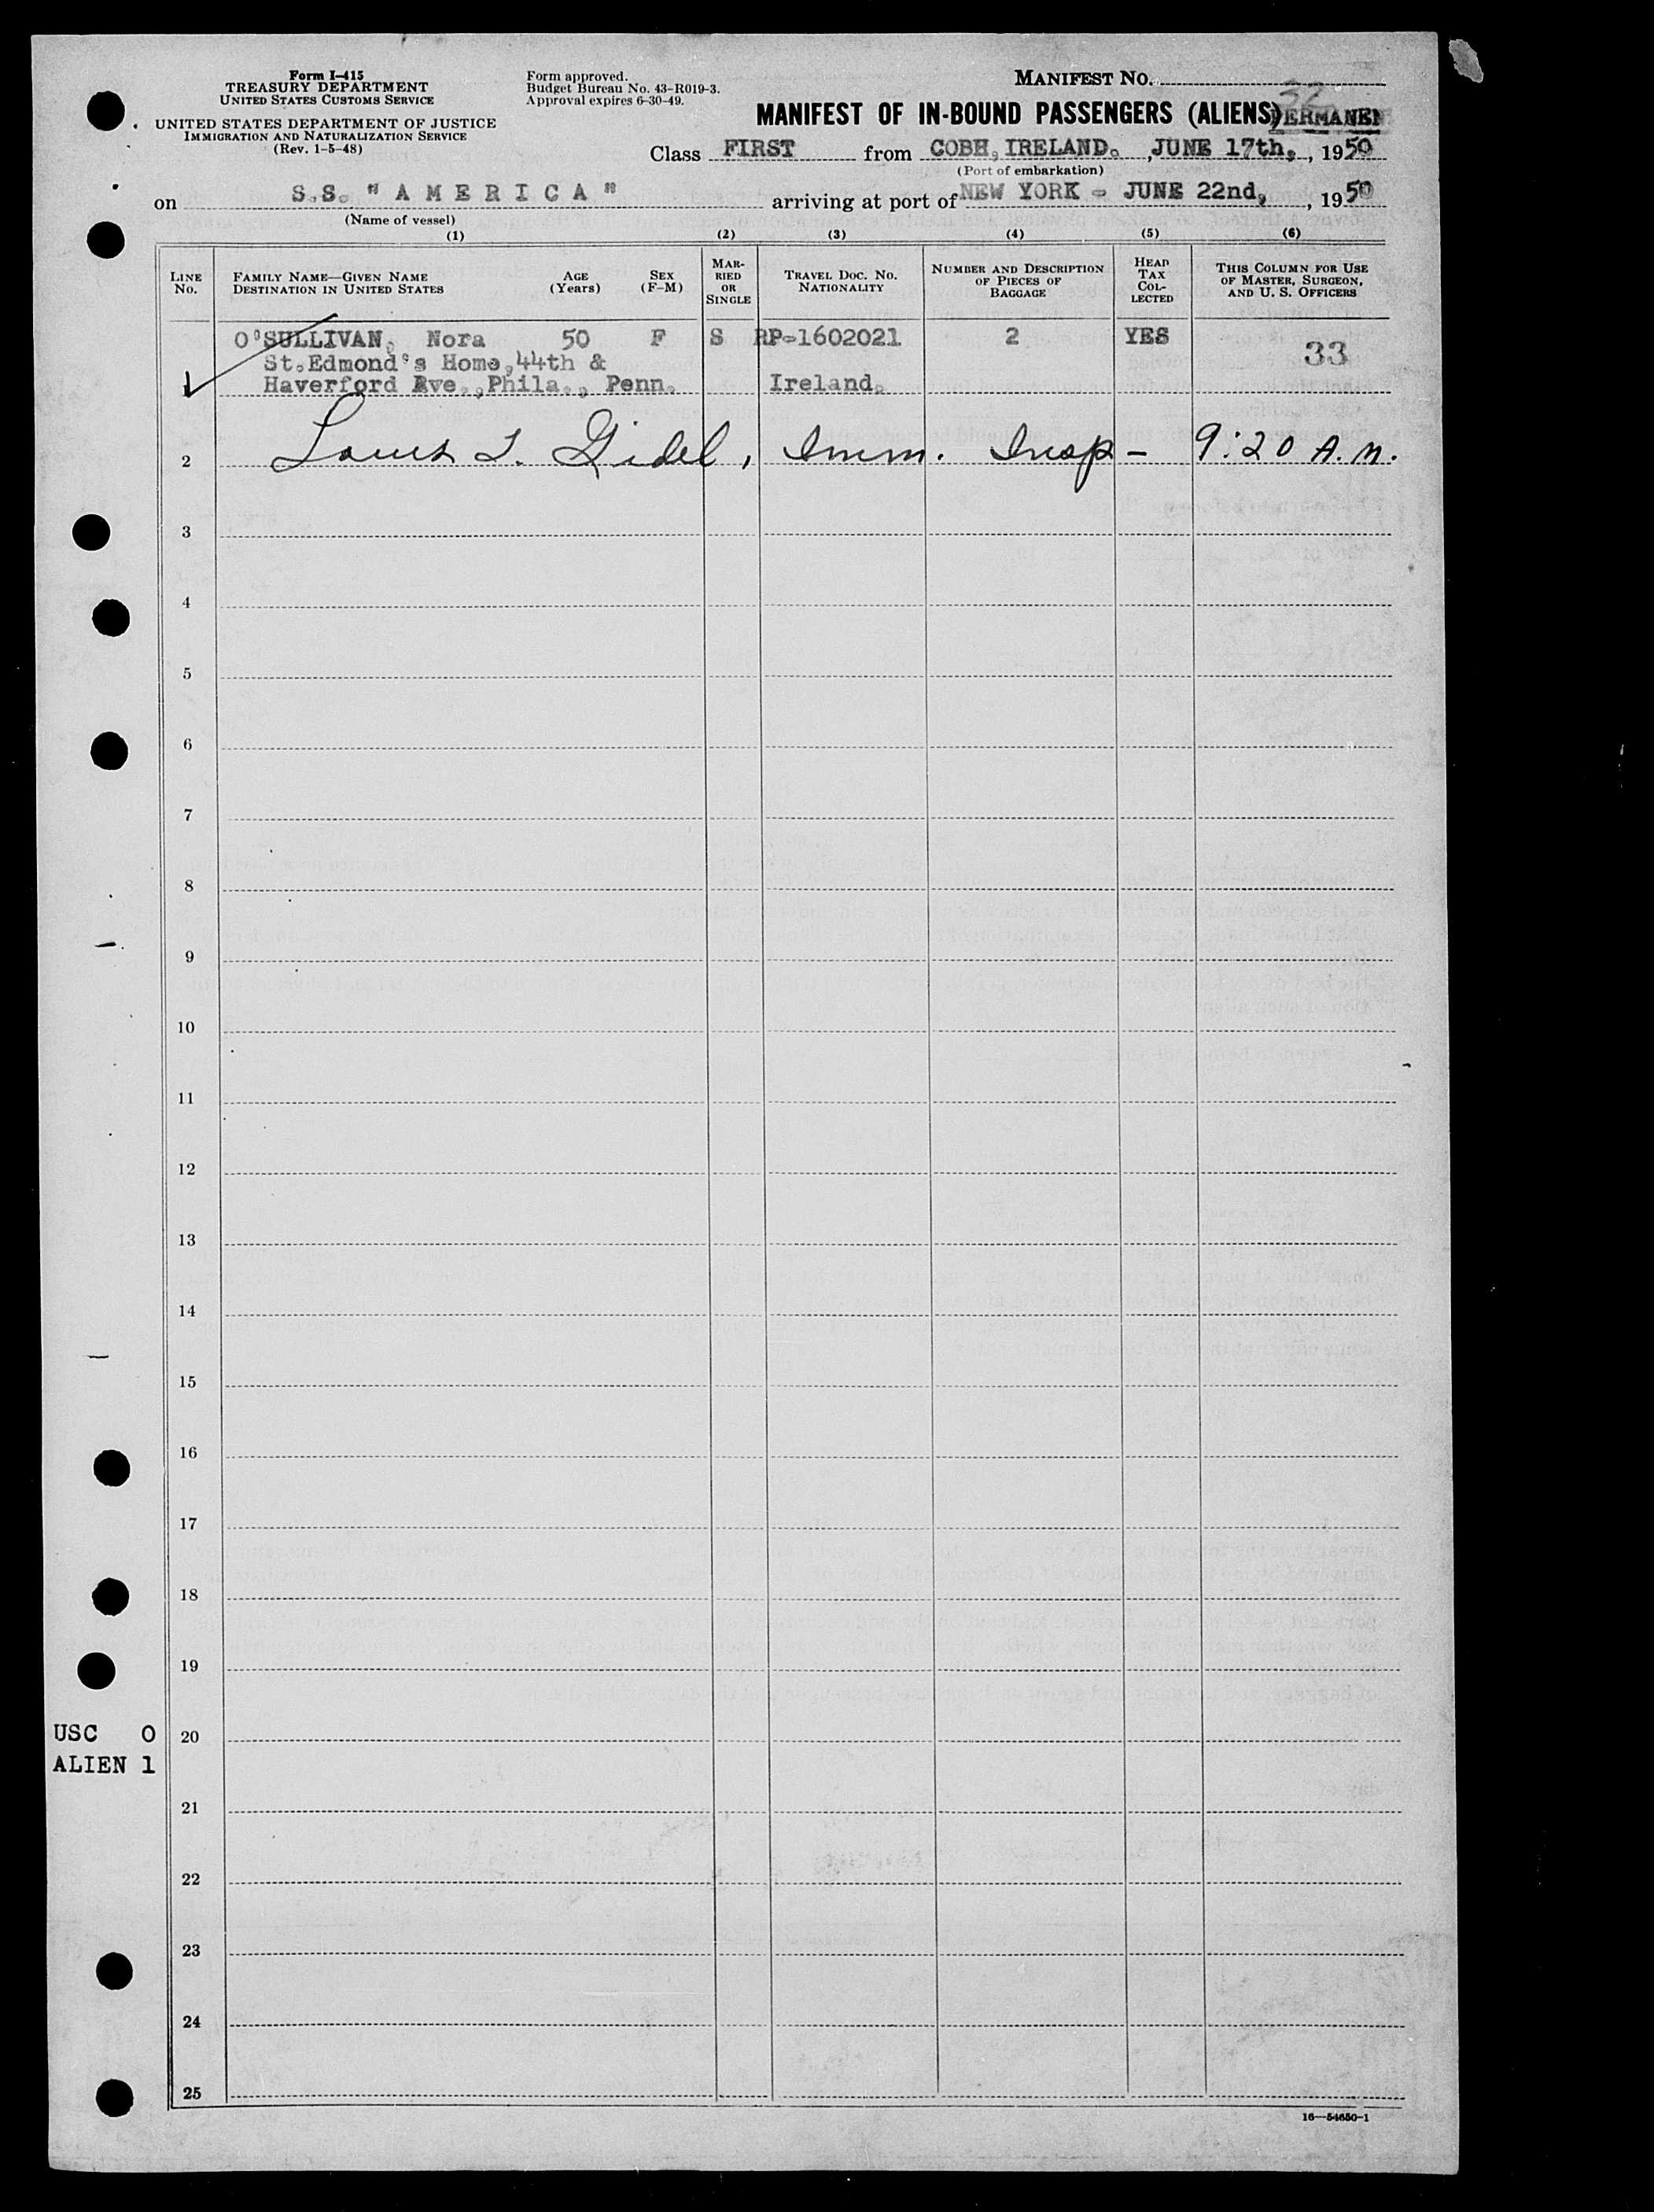 Form I-415
TREASURY DEPARTMENT
UNITED STATES CUSTOMS SERVICE
UNITED STATES DEPARTMENT OF JUSTICE
IMMIGRATION AND NATURALIZATION SERVICE
(Rev. 1-5-48)
Form approved.
Budget Bureau No. 43-R019-3.
Approval expires 6-30-49.
MANIFEST NO.
32
MANIFEST OF IN-BOUND PASSENGERS (ALIENS) PERMANEN
Class FIRST from COBH, IRELAND. , JUNE 17th, , 1950
(Port of embarkation)
on S.S. "A M E R I C A" arriving at port of NEW YORK - JUNE 22nd, , 1950
(Name of vessel)
(1) (2) (3) (4) (5) (6)
LINE No.
FAMILY NAME—GIVEN NAME
DESTINATION IN UNITED STATES
AGE (Years)
SEX (F-M)
MARRIED OR SINGLE
TRAVEL DOC. NO.
NATIONALITY
NUMBER AND DESCRIPTION OF PIECES OF BAGGAGE
HEAD TAX COLLECTED
THIS COLUMN FOR USE OF MASTER, SURGEON, AND U. S. OFFICERS
O'SULLIVAN, Nora 50 F S RP-1602021 2 YES 33
St.Edmond's Home,44th &
Haverford Ave.,Phila., Penn. Ireland.
2 Louis I. Gidel, Imm. Insp - 9:20 A.M.
3
4
5
6
7
8
9
10
11
12
13
14
15
16
17
18
19
USC 0 20
ALIEN 1
21
22
23
24
25
16—54650-1